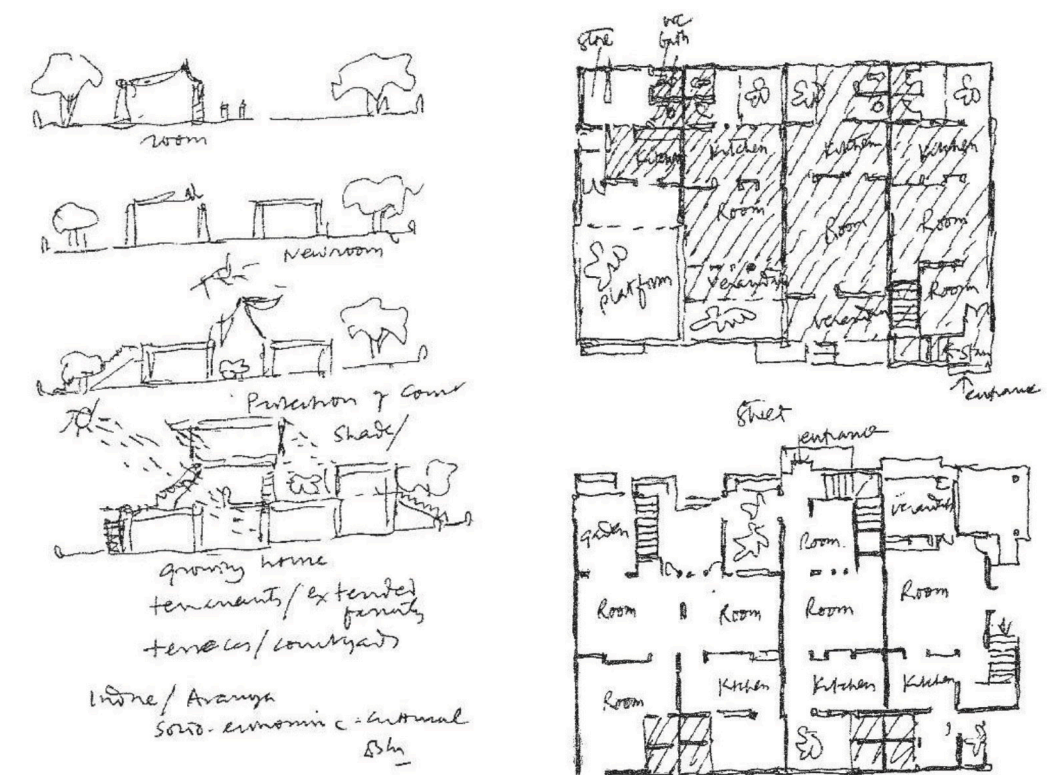 room
New room
Protection of Court
Shade/
growing home
tenants/extended
family
terraces/courtyards
Indore/Aranya
Socio-economic-cultural
store
wc
bath
Kitchen
Kitchen
Kitchen
Kitchen
Room
Room
Room
platform
verandah
verandah
Room
entrance
street
entrance
garden
verandah
Room
Room
Room
Room
Room
Room
Kitchen
Kitchen
Kitchen